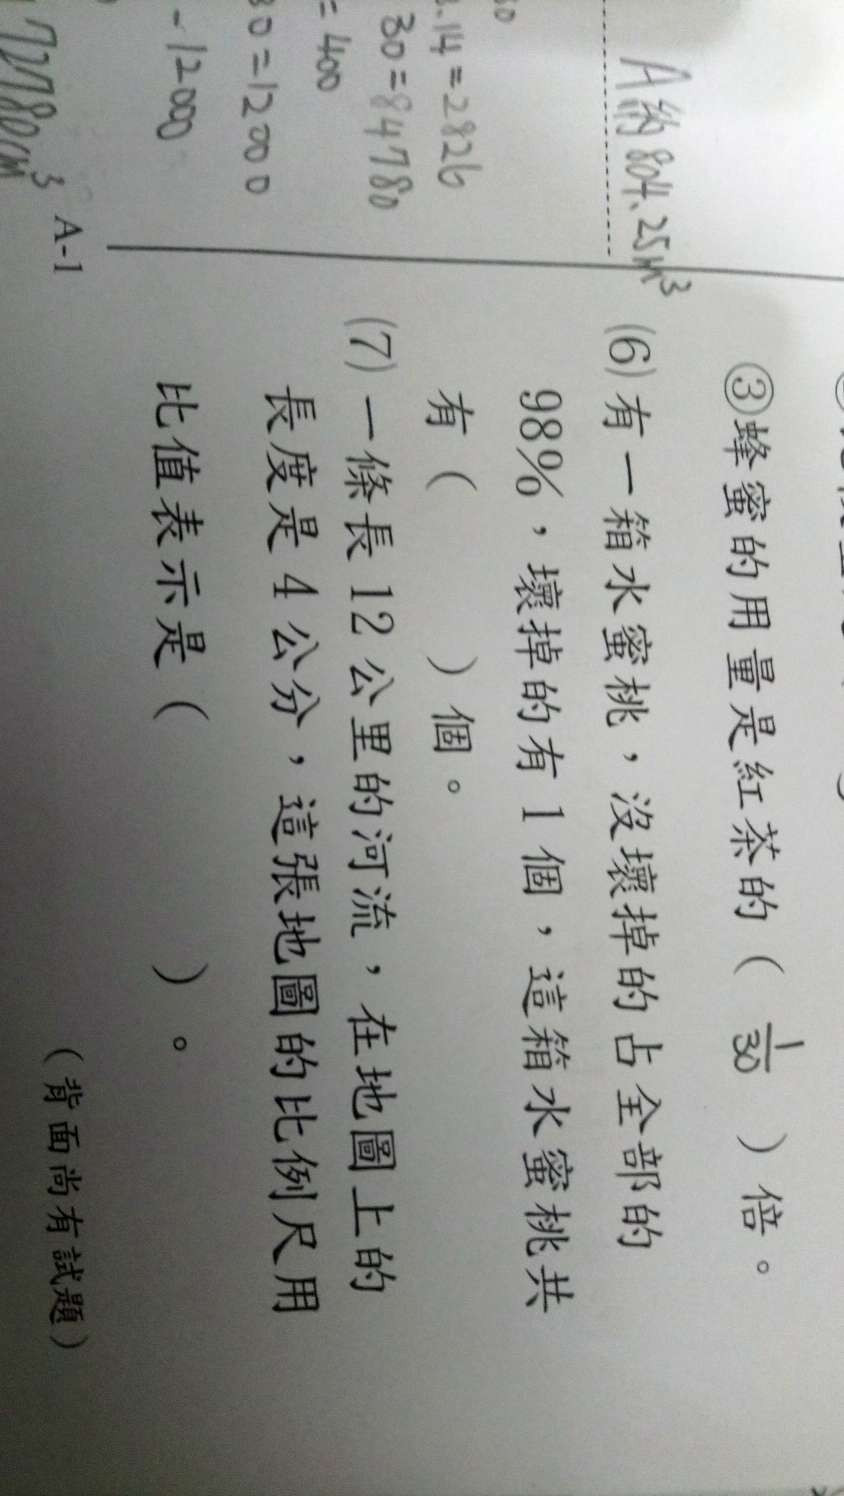 A約804.25m³
30
3.14=2826
30=84780
=400
30=12000
-12000
72780cm³
③蜂蜜的用量是紅茶的(1/30)倍。
(6)有一箱水蜜桃,沒壞掉的占全部的
98%,壞掉的有1個,這箱水蜜桃共
有( )個。
(7)一條長12公里的河流,在地圖上的
長度是4公分,這張地圖的比例尺用
比值表示是( )。
A-1
(背面尚有試題)